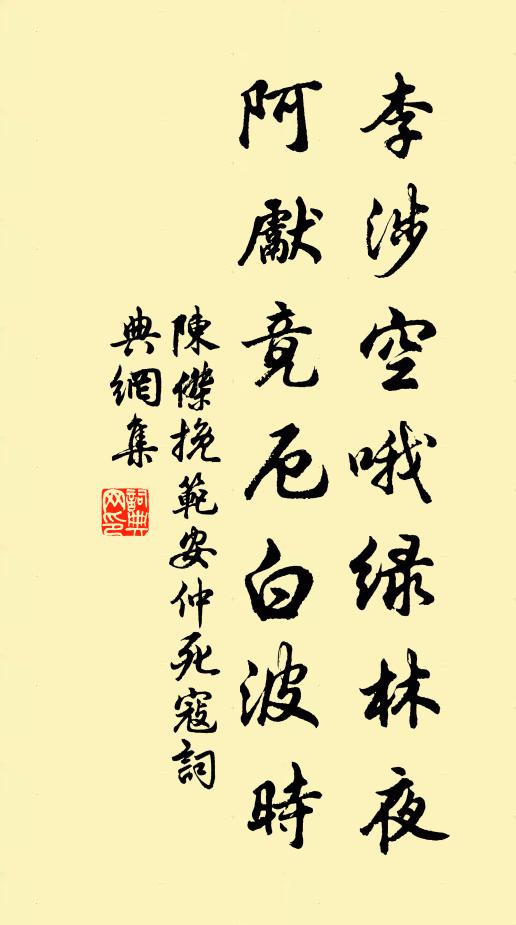 李涉空哦緑林夜
阿獻竟厄白波時
陳傑挽範安仲死寇詞
典網集
詞典網印